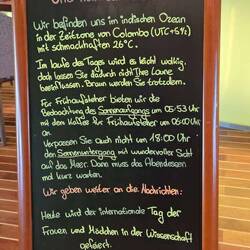 Wir befinden uns im indischen Ozean
in der Zeitzone von Colombo (UTC+5½)
mit schmackhaften 26°C.
Im laufe des Tages wird es leicht wolkig,
doch lassen Sie dadurch nicht Ihre Laune
beeinflussen. Braun werden Sie trotzdem.
Für Frühaufsteher bieten wir die
Beobachtung des Sonnenaufgangs um 05:53 Uhr
mit dem Kaffee für Frühaufsteher um 06:00 Uhr
an
Verpassen Sie auch nicht um 18:00 Uhr
den Sonnenuntergang mit wundervoller Sicht
auf das Meer. Dann muss das Abendessen
mal kurz warten.
Wir geben weiter an die Nachrichten:
Heute wird der internationale Tag der
Frauen und Mädchen in der Wissenschaft
gefeiert.